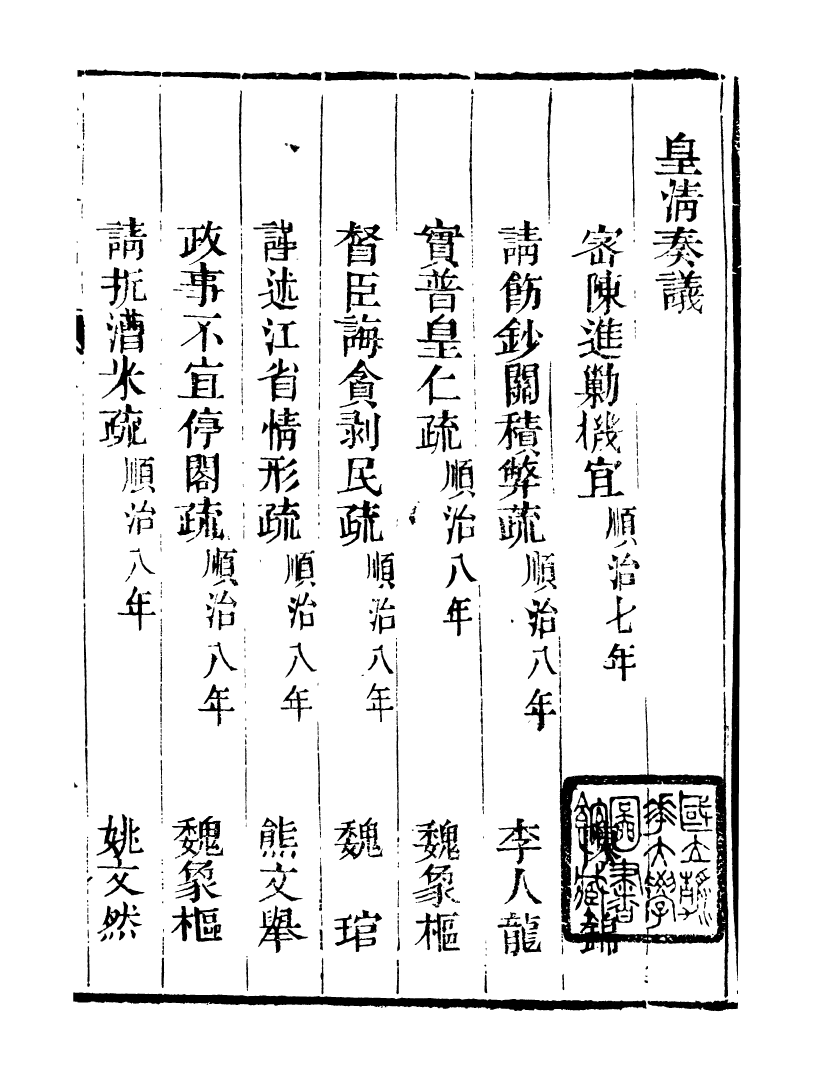 皇淸奏議
密陳進勦機宜 順治七年 陳 錦
請飭鈔關積弊疏 順治八年 李人龍
實普皇仁疏 順治八年 魏象樞
督臣誨貪剥民疏 順治八年 魏 琯
詳述江省情形疏 順治八年 熊文舉
政事不宜停閣疏 順治八年 魏象樞
請折漕米疏 順治八年 姚文然
國立清華大學圖書館藏